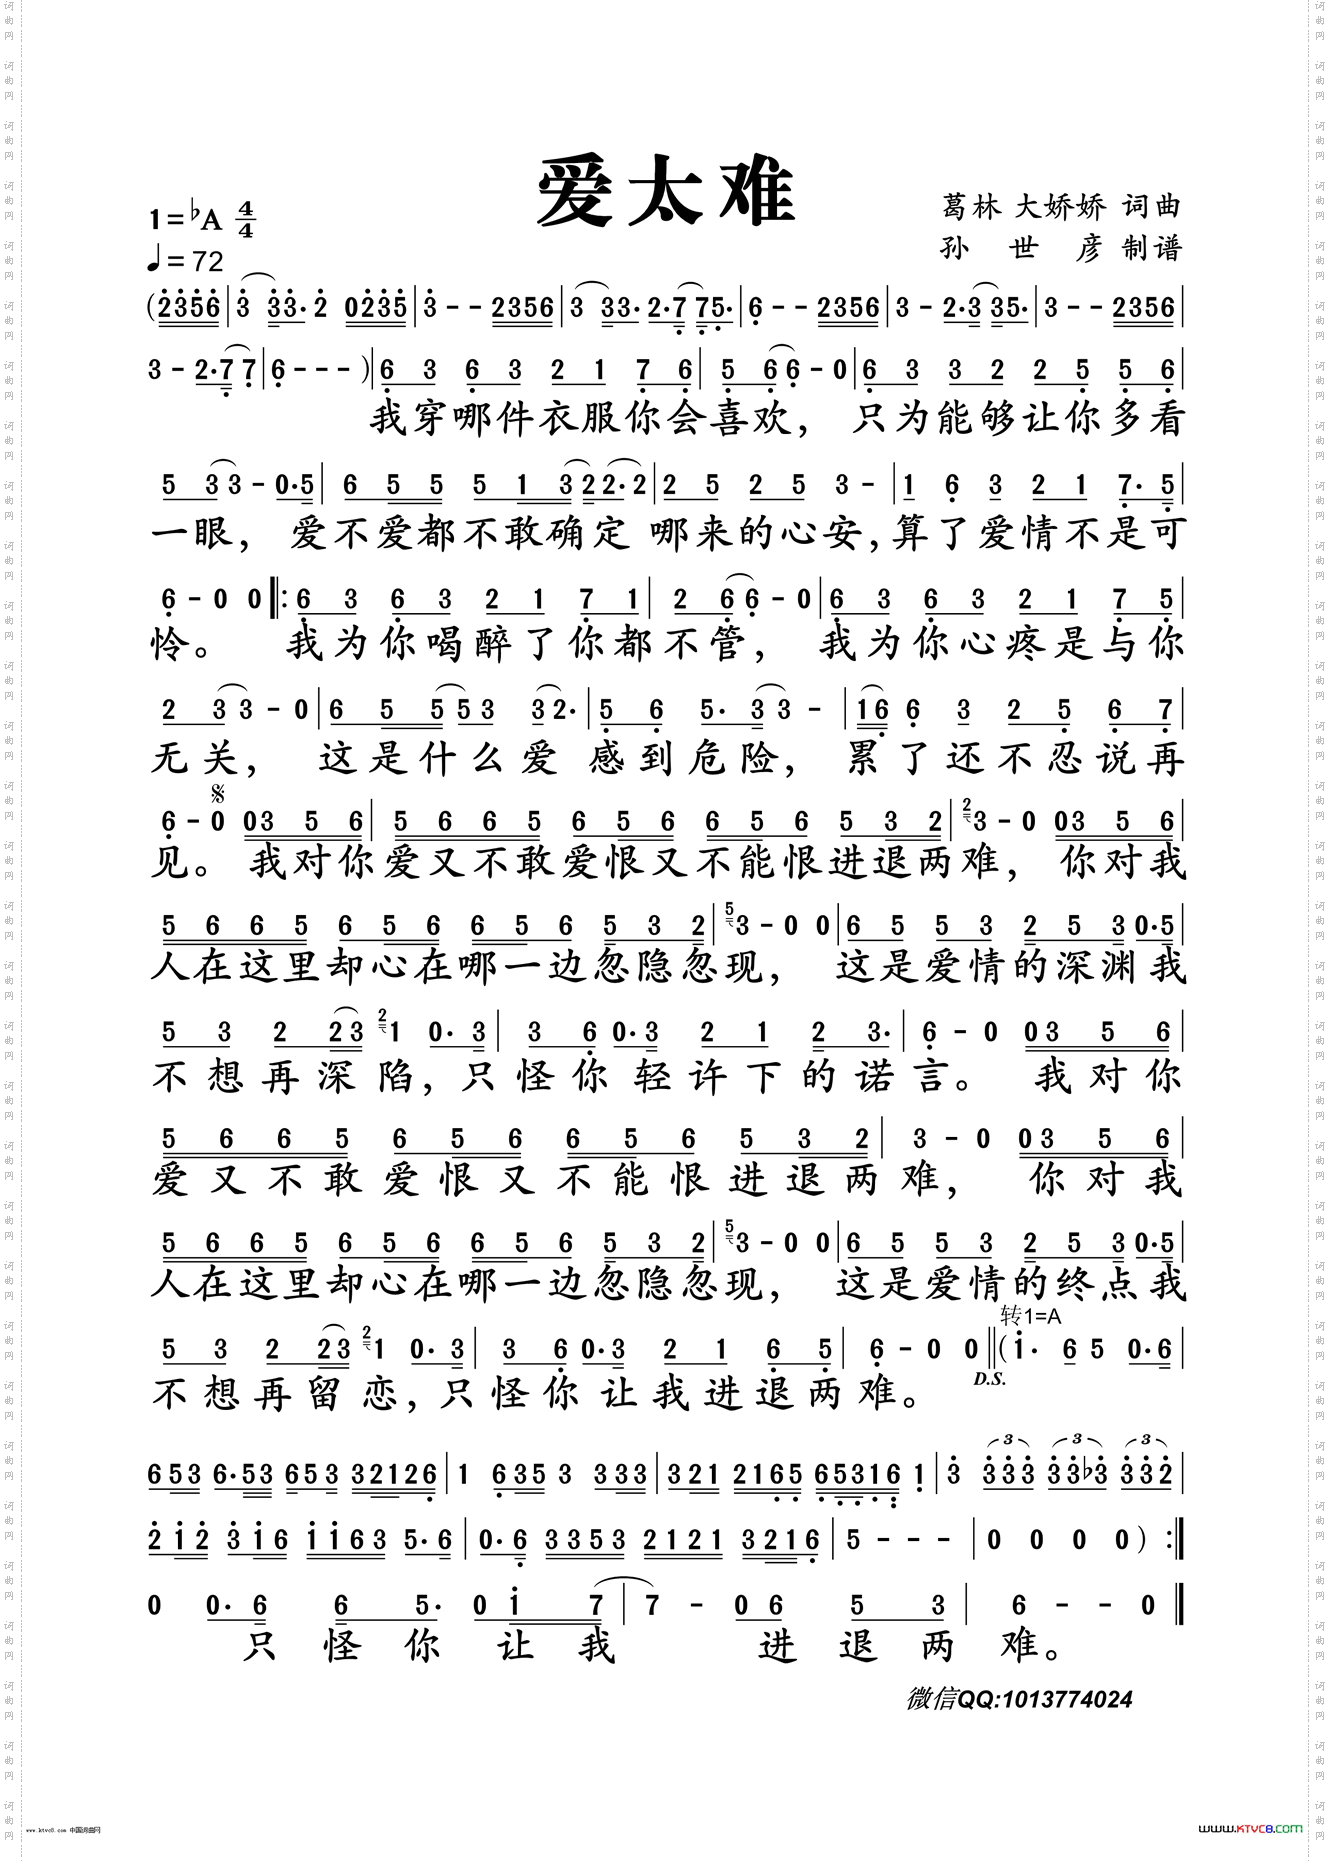 爱太难
1=♭A 4/4
葛林 大娇娇 词曲
♩=72
孙 世 彦 制谱
(2356|3 33· 2 0235|3 - - 2356|3 33· 2·7 75·|6 - - 2356|3 - 2·3 35·|3 - - 2356|
3 - 2·7 7|6 - - - )|6 3 6 3 2 1 7 6|5 6 6 - 0|6 3 3 2 2 5 5 6|
我穿哪件衣服你会喜欢, 只为能够让你多看
5 3 3 - 0·5|6 5 5 5 1 3 2 2·2|2 5 2 5 3 -|1 6 3 2 1 7· 5|
一眼, 爱不爱都不敢确定 哪来的心安,算了爱情不是可
6 - 0 0 ‖:6 3 6 3 2 1 7 1|2 6 6 - 0|6 3 6 3 2 1 7 5|
怜。 我为你喝醉了你都不管, 我为你心疼是与你
2 3 3 - 0|6 5 5 5 3 3 2·|5 6 5· 3 3 -|16 6 3 2 5 6 7|
无关, 这是什么爱 感到危险, 累了还不忍说再
𝄋
6 - 0 03 5 6|5 6 6 5 6 5 6 6 5 6 5 3 2|2 3 - 0 03 5 6|
见。 我对你爱又不敢爱恨又不能恨进退两难, 你对我
5 6 6 5 6 5 6 6 5 6 5 3 2|5 3 - 0 0|6 5 5 3 2 5 3 0·5|
人在这里却心在哪一边忽隐忽现, 这是爱情的深渊我
5 3 2 23 2 1 0· 3|3 6 0·3 2 1 2 3·|6 - 0 03 5 6|
不想再深陷,只怪你轻许下的诺言。 我对你
5 6 6 5 6 5 6 6 5 6 5 3 2|3 - 0 03 5 6|
爱又不敢爱恨又不能恨进退两难, 你对我
5 6 6 5 6 5 6 6 5 6 5 3 2|5 3 - 0 0|6 5 5 3 2 5 3 0·5|
人在这里却心在哪一边忽隐忽现, 这是爱情的终点我
转1=A
5 3 2 23 2 1 0· 3|3 6 0·3 2 1 6 5|6 - 0 0‖(1· 6 5 0·6|
D.S.
不想再留恋,只怪你让我进退两难。
3 3 3
653 6·53 653 32126|1 635 3 333|321 2165 65316 1|3 333 33♭3 332|
212 316 1163 5·6|0·6 3353 2121 3216|5 - - -|0 0 0 0) :‖
0 0·6 6 5· 0 1 7|7 - 06 5 3|6 - - 0‖
只怪你让我 进退两难。
微信QQ:1013774024
www.ktvc8.com 中国词曲网
www.KTVC8.com